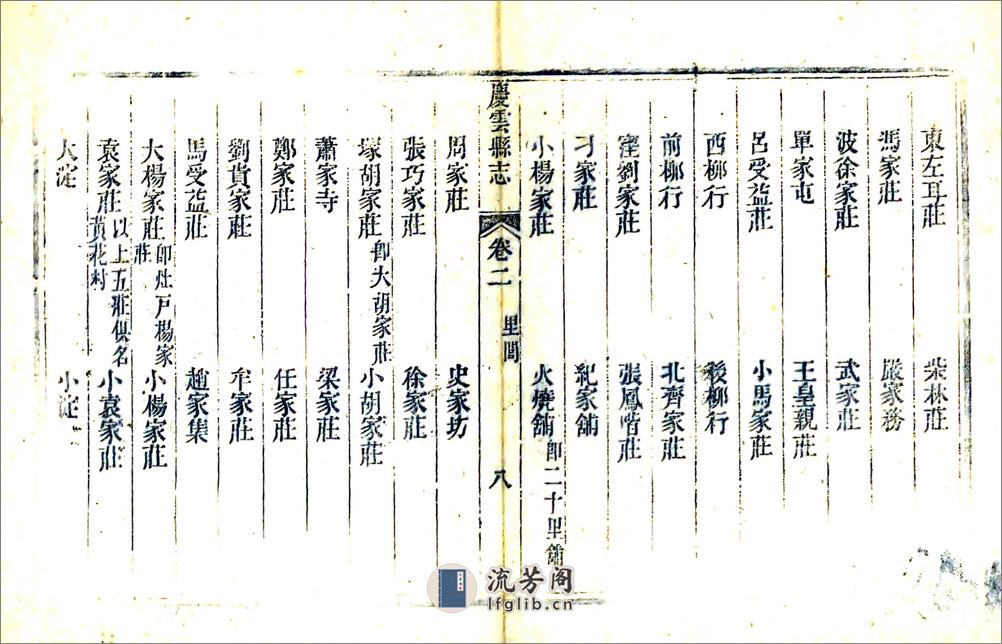 東左耳莊 柴林莊
馮家莊 嚴家務
波徐家莊 武家莊
單家屯 王皇親莊
呂受益莊 小馬家莊
西柳行 後柳行
前柳行 北齊家莊
窪劉家莊 張鳳階莊
刁家莊 紀家舖
小楊家莊 火燒舖 即二十里舖
慶雲縣志 卷二 里閭 八
周家莊 史家坊
張巧家莊 徐家莊
塚胡家莊 即大胡家莊 小胡家莊
蕭家寺 梁家莊
鄭家莊 任家莊
劉貴家莊 牟家莊
馬受益莊 趙家集
大楊家莊 即灶戶楊家莊 小楊家莊
袁家莊 以上五莊俱名黃花村 小袁家莊
大淀 小淀
流芳阁
lfglib.cn